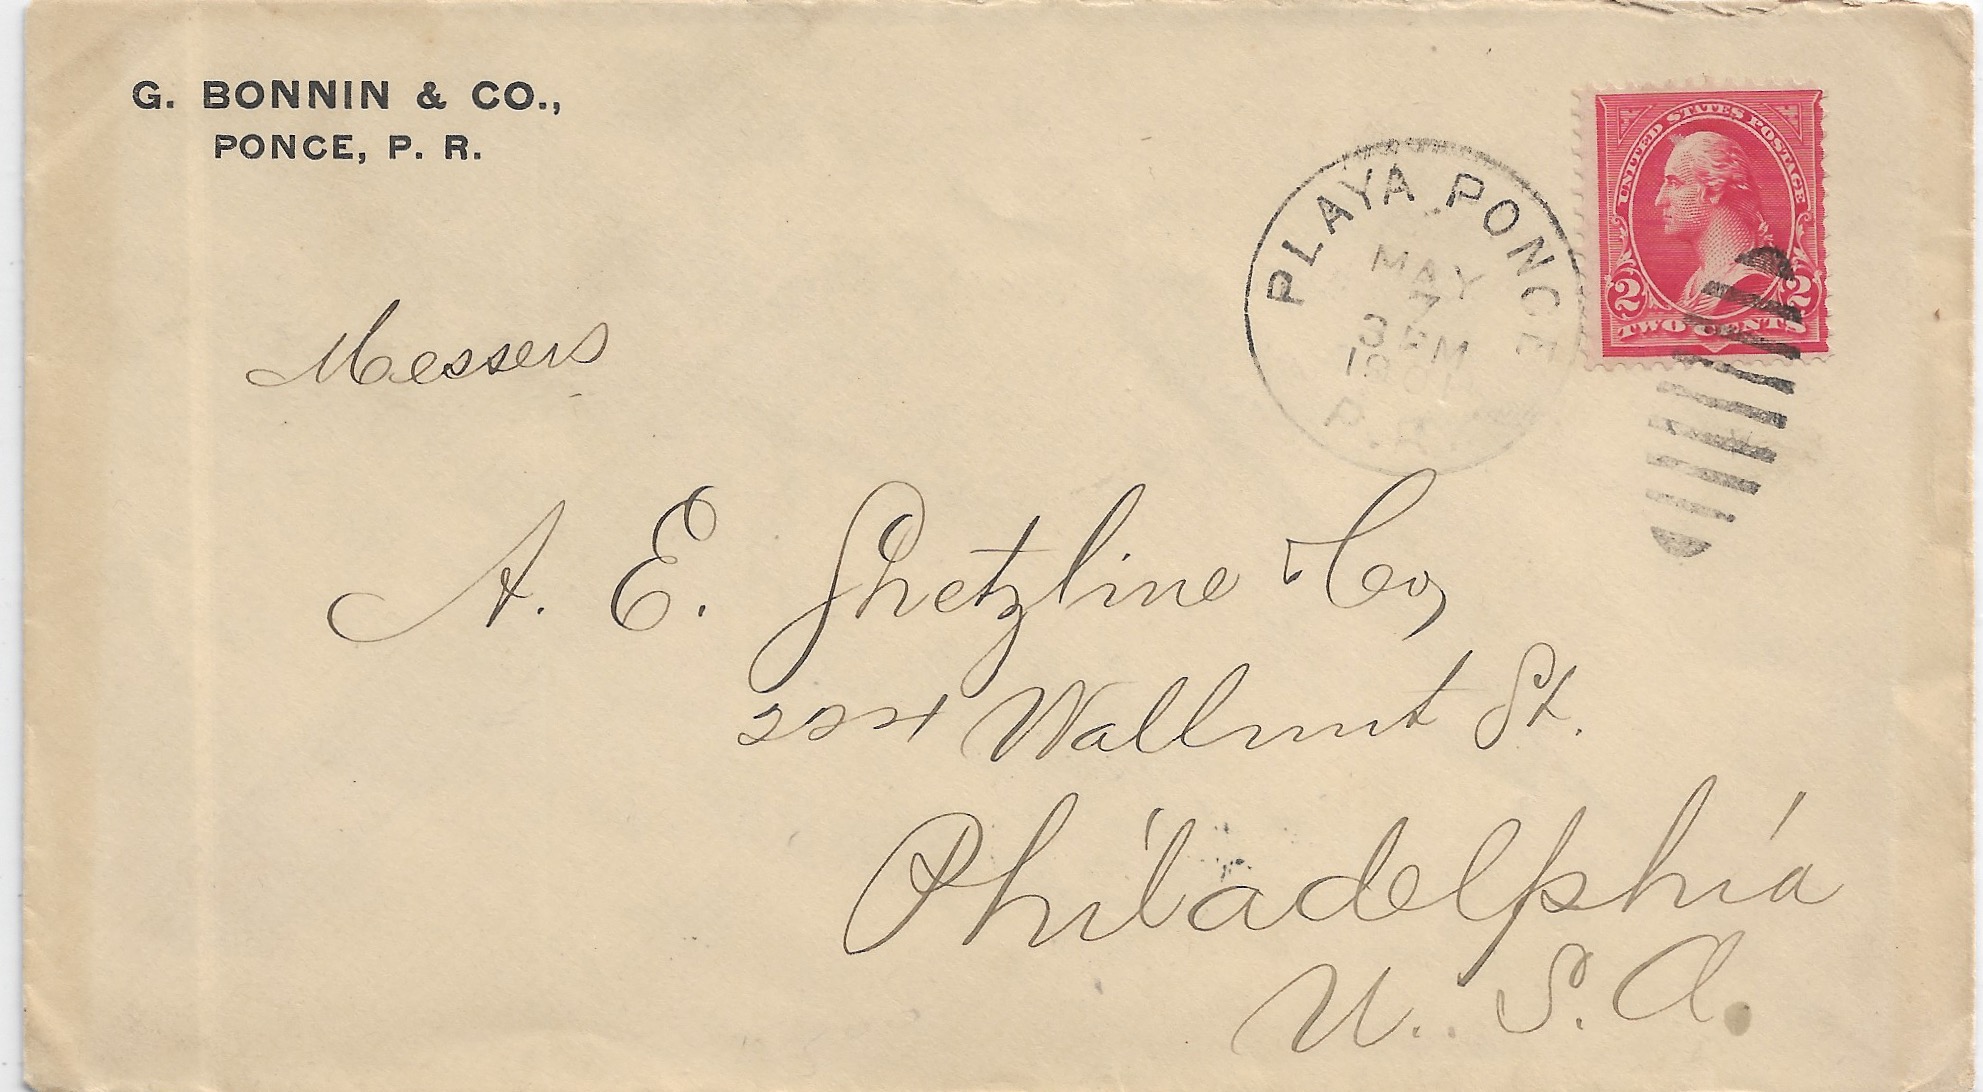 G. BONNIN & CO.,
PONCE, P. R.
PLAYA PONCE
MAY
7
3 PM
1901
P.R.
UNITED STATES POSTAGE
2 2
TWO CENTS
Messers
A. E. Shetzline & Co,
224 Wallnut St.
Philadelphia
U. S. A.